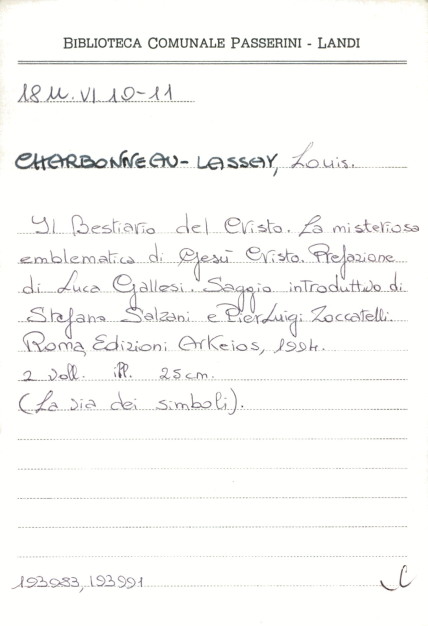 BIBLIOTECA COMUNALE PASSERINI - LANDI
18 M. VI 10-11
CHARBONNEAU-LASSAY, Louis.
Il Bestiario del Cristo. La misteriosa
emblematica di Gesù Cristo. Prefazione
di Luca Gallesi. Saggio introduttivo di
Stefano Salzani e PierLuigi Zoccatelli.
Roma, Edizioni Arkeios, 1994.
2 voll. ill. 25 cm.
(La via dei simboli).
193983, 193991